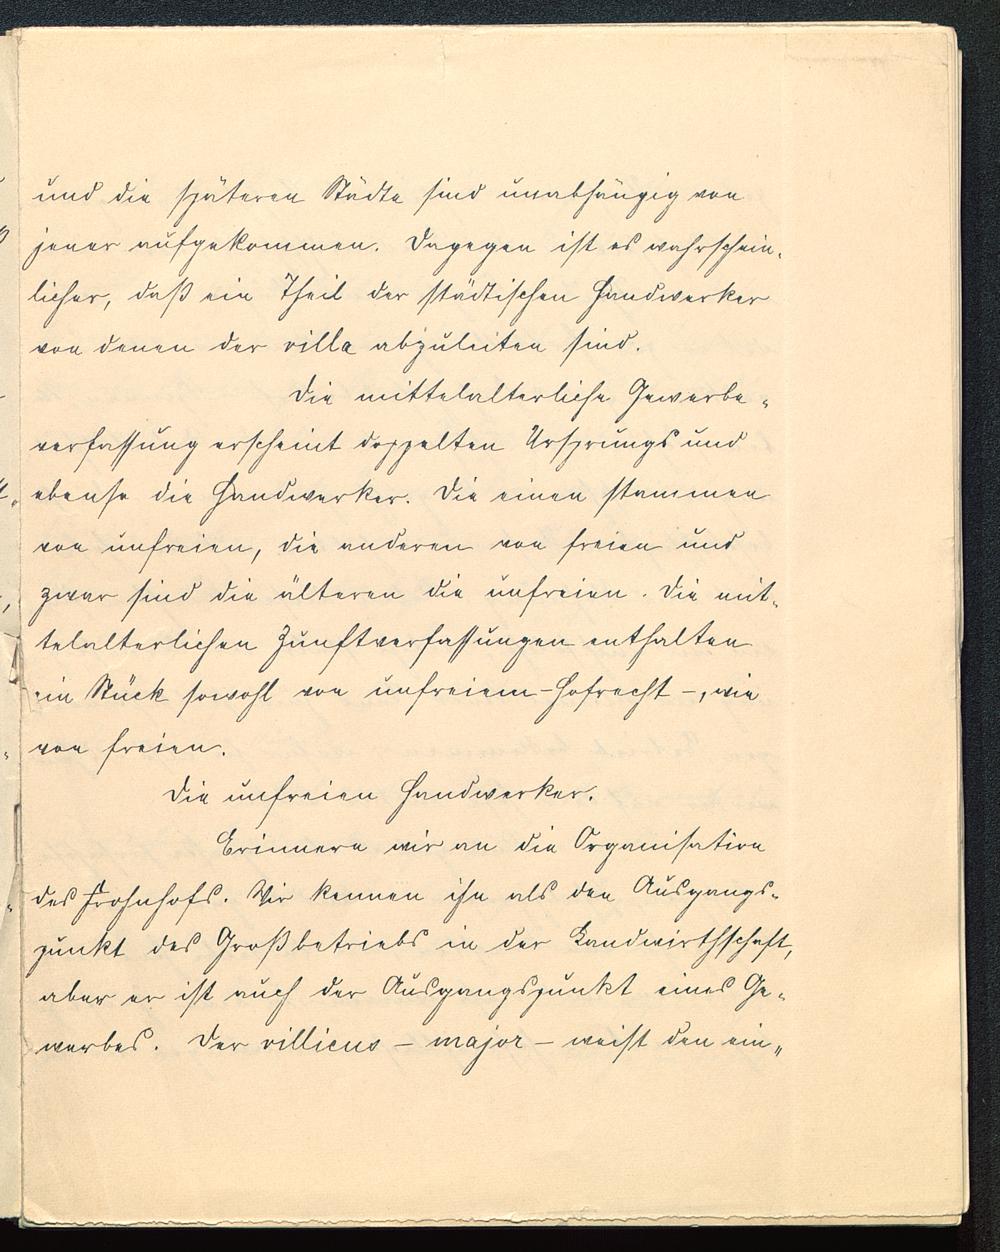 und die späteren Städte sind unabhängig von
jener aufgekommen. Dagegen ist es wahrschein-
licher, daß ein Theil der städtischen Handwerker
von denen der villa abzuleiten sind.
Die mittelalterliche Gewerbe-
verfassung erscheint doppelten Ursprungs und
ebenso die Handwerker. Die einen stammen
von unfreien, die anderen von freien und
zwar sind die älteren die unfreien. Die mit-
telalterlichen Zunftverfassungen enthalten
ein Stück sowohl von unfreiem - Hofrecht -, wie
von freien.
Die unfreien Handwerker.
Erinnern wir an die Organisation
des Frohnhofs. Wir kennen ihn als den Ausgangs-
punkt des Großbetriebs in der Landwirthschaft,
aber er ist auch der Ausgangspunkt eines Ge-
werbes. Der villicus - major - weist den ein-